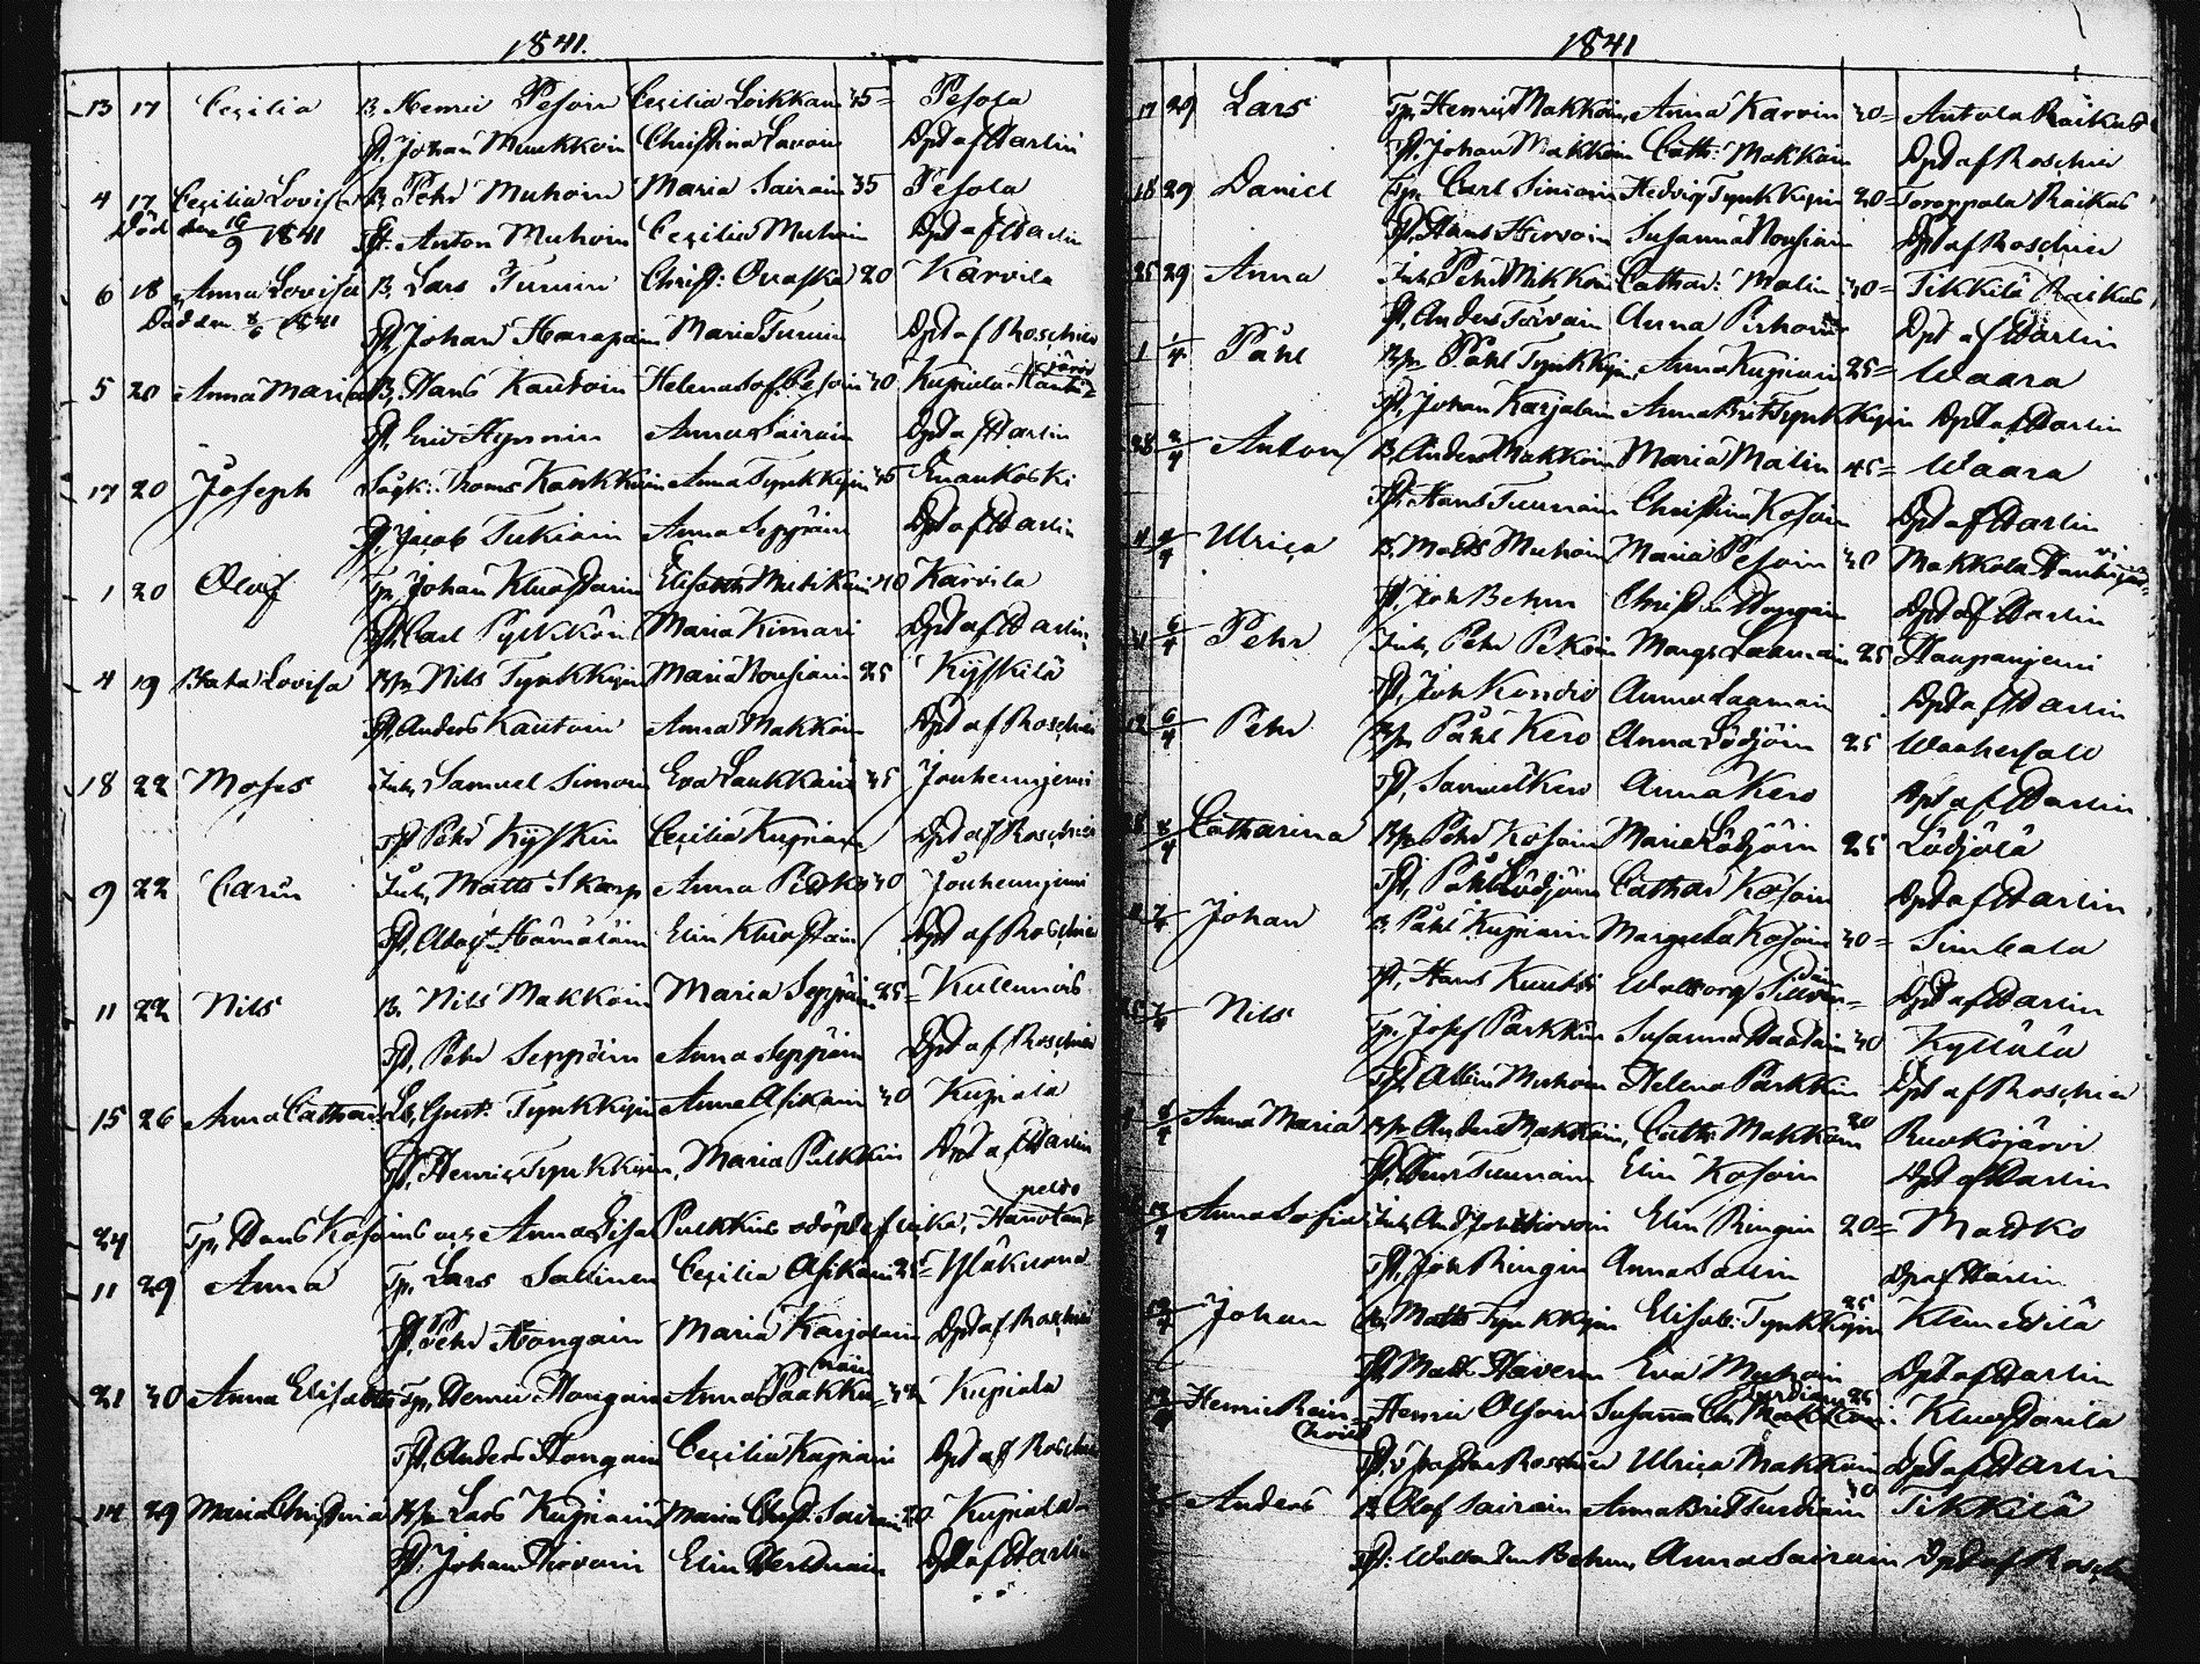 1841.
13 17 Cecilia B. Henric Pesoin Cecilia Loikkain 35= Pesola
Tst, Johan Muukkoin Christina Lavoin Dpt af Harlin
4 17 Cecilia Lovisa B, Pehr Muhoin Maria Sairain 35 Pesola
Död den 16/9 1841 Tst. Anton Muhoin Cecilia Muhoin Dpt af Harlin
6 18 Anna Lovisa B. Lars Turuin Christ: Ovaska 20 Karvila
Död den 8/6 1841 Tst, Johan Harapain Maria Turuin Dpt af Roschier
5 20 Anna Maria B, Hans Kautoin Helena Sof. Pesoin 40 Kupiala Hauki=
järvi
Tst, Eric Hynnin Anna Sairain Dpt af Harlin
17 20 Joseph Sågk: Thoms Kaukkuin Anna Tynkkyin 35 Enankoski
Tst, Jacob Tukiain Anna Seppäin Dpt af Harlin
1 20 Olof Tp, Johan Kluastarin Elisabeth Mutikain 40 Karvila
Tst, Carl Pylkköin Maria Kimari Dpt af Harlin
4 19 Beata Lovisa Bs, Nils Tynkkyin Maria Nousiain 25 Kyyskilä
Tst, Anders Kautoin Anna Makkoin Dpt af Roschier
18 22 Moses Inh, Samuel Simoin Eva Laukkain 35 Jouhennjemi
Tst Pehr Kyyskin Cecilia Kupiain Dpt af Roschier
9 22 Carin Inh, Matts Skarp Anna Pitko 40 Jouhennjemi
Tst, Adolf Hämäläin Elin Kluastain Dpt af Roschier
11 22 Nils B. Nils Makkoin Maria Seppäin 25= Kulennois
Tst, Pehr Seppäin Anna Seppäin Dpt af Roschier
15 26 Anna Cathar: Lb, Gust: Tynkkyin Anna Asikain 40 Kupiala
Tst, Henric Tynkkyin, Maria Pulkkin Dpt af Harlin
peldo
24 Tp, Hans Kosoins och Anna Lisa Pulkkins odöpte flicka, Hannolan=
11 29 Anna Tp, Lars Sallinen Cecilia Asikain 25= Yläkuona
Tst, Pehr Hongain Maria Karjalain Dpt af Roschier
näin
21 30 Anna Elisabeth Tp, Henric Hongain Anna Paakku= 32 Kupiala
Tst, Anders Hongain Cecilia Kupiain Dpt af Roschier
14 29 Maria Christina Bs Lars Kupiain Maria Christ: Sairain 20 Kupiala
Tst: Johan Hirvoin Elin Partanain Dpt af Harlin
1841
17 29 Lars Tp, Henric Makkoin, Anna Karvin 30= Antola Raikus
Tst, Johan Makkoin Cath: Makkoin Dpt af Roschier
18 29 Daniel Tp, Carl Simoin Hedvig Tynkkyin 20= Toroppala Raikus
Tst, Hans Hirvoin Susanna Nousiain Dpt af Roschier
25 29 Anna Inh, Pehr Mikkoin Cathar: Malin 30= Tikkilä Raikus
Tst, Anders Toivain Anna Pirhoin Dpt af Harlin
1 1/4 Påhl Bs, Påhl Tynkkyin, Anna Kupiain 25= Waara
Tst, Johan Karjalain Anna Brit Tynkkyin Dpt af Harlin
28 2/4 Anton B, Anders Makkoin Maria Malin 45= Waara
Tst, Hans Tuunain Christina Kosoin Dpt af Harlin
4/4 Ulrica B. Matts Muhoin Maria Pesoin 30 Makkola Haukijär=
vi
Tst, Joh Behm Christina Hongain Dpt af Harlin
6/4 Pehr Inh, Pehr Pekoin Margr Laamain 25 Haapanjemi
Tst, Joh Kondio Anna Laamain Dpt af Harlin
6/4 Pehr Bs, Påhl Kero Anna Lödjöin 25 Waahersalo
Tst, Samuel Kero Anna Kero Dpt af Harlin
8/4 Catharina Bs, Pehr Kosoin Maria Lödjöin 25 Lödjölä
Tst, Påhl Lödjöin Cathar Kosoin Dpt af Harlin
7/4 Johan B. Påhl Kupiain Margreta Kosoin 30= Simbala
Tst, Hans Kuutti Walborg Silvon= Dpt af Harlin
7/4 Nils Tp. Josef Parkkin Susanna Haatain 30 Kyllälä
Tst, Albin Muhoin Helena Parkkin Dpt af Roschier
8/4 Anna Maria Bs, Anders Makkoin, Cath: Makkoin 20 Ruokojärvi
Tst, Hans Tuunain Elin Kosoin Dpt af Harlin
12/4 Anna Sofia Inh, And Joh Hirvoin Elin Ringin 20= Matko
Tst, Joh Ringin Anna Sallin Dpt af Harlin
12/4 Johan B, Matts Tynkkyin Elisab: Tynkkyin 25 Klemettilä
Tst, Matts Haveri Eva Muhoin Dpt af Harlin
Henric Rein= Henric Olsoni Susanna Chr. Turdiain 25 Kluastarila
hold
Tst, Roschier Ulrica Makkoin Dpt af Harlin
Anders B Olof Sairain Anna Brit Turdiain 30 Tikkilä
Tst: Behm, Anna Sairain Dpt af Roschier